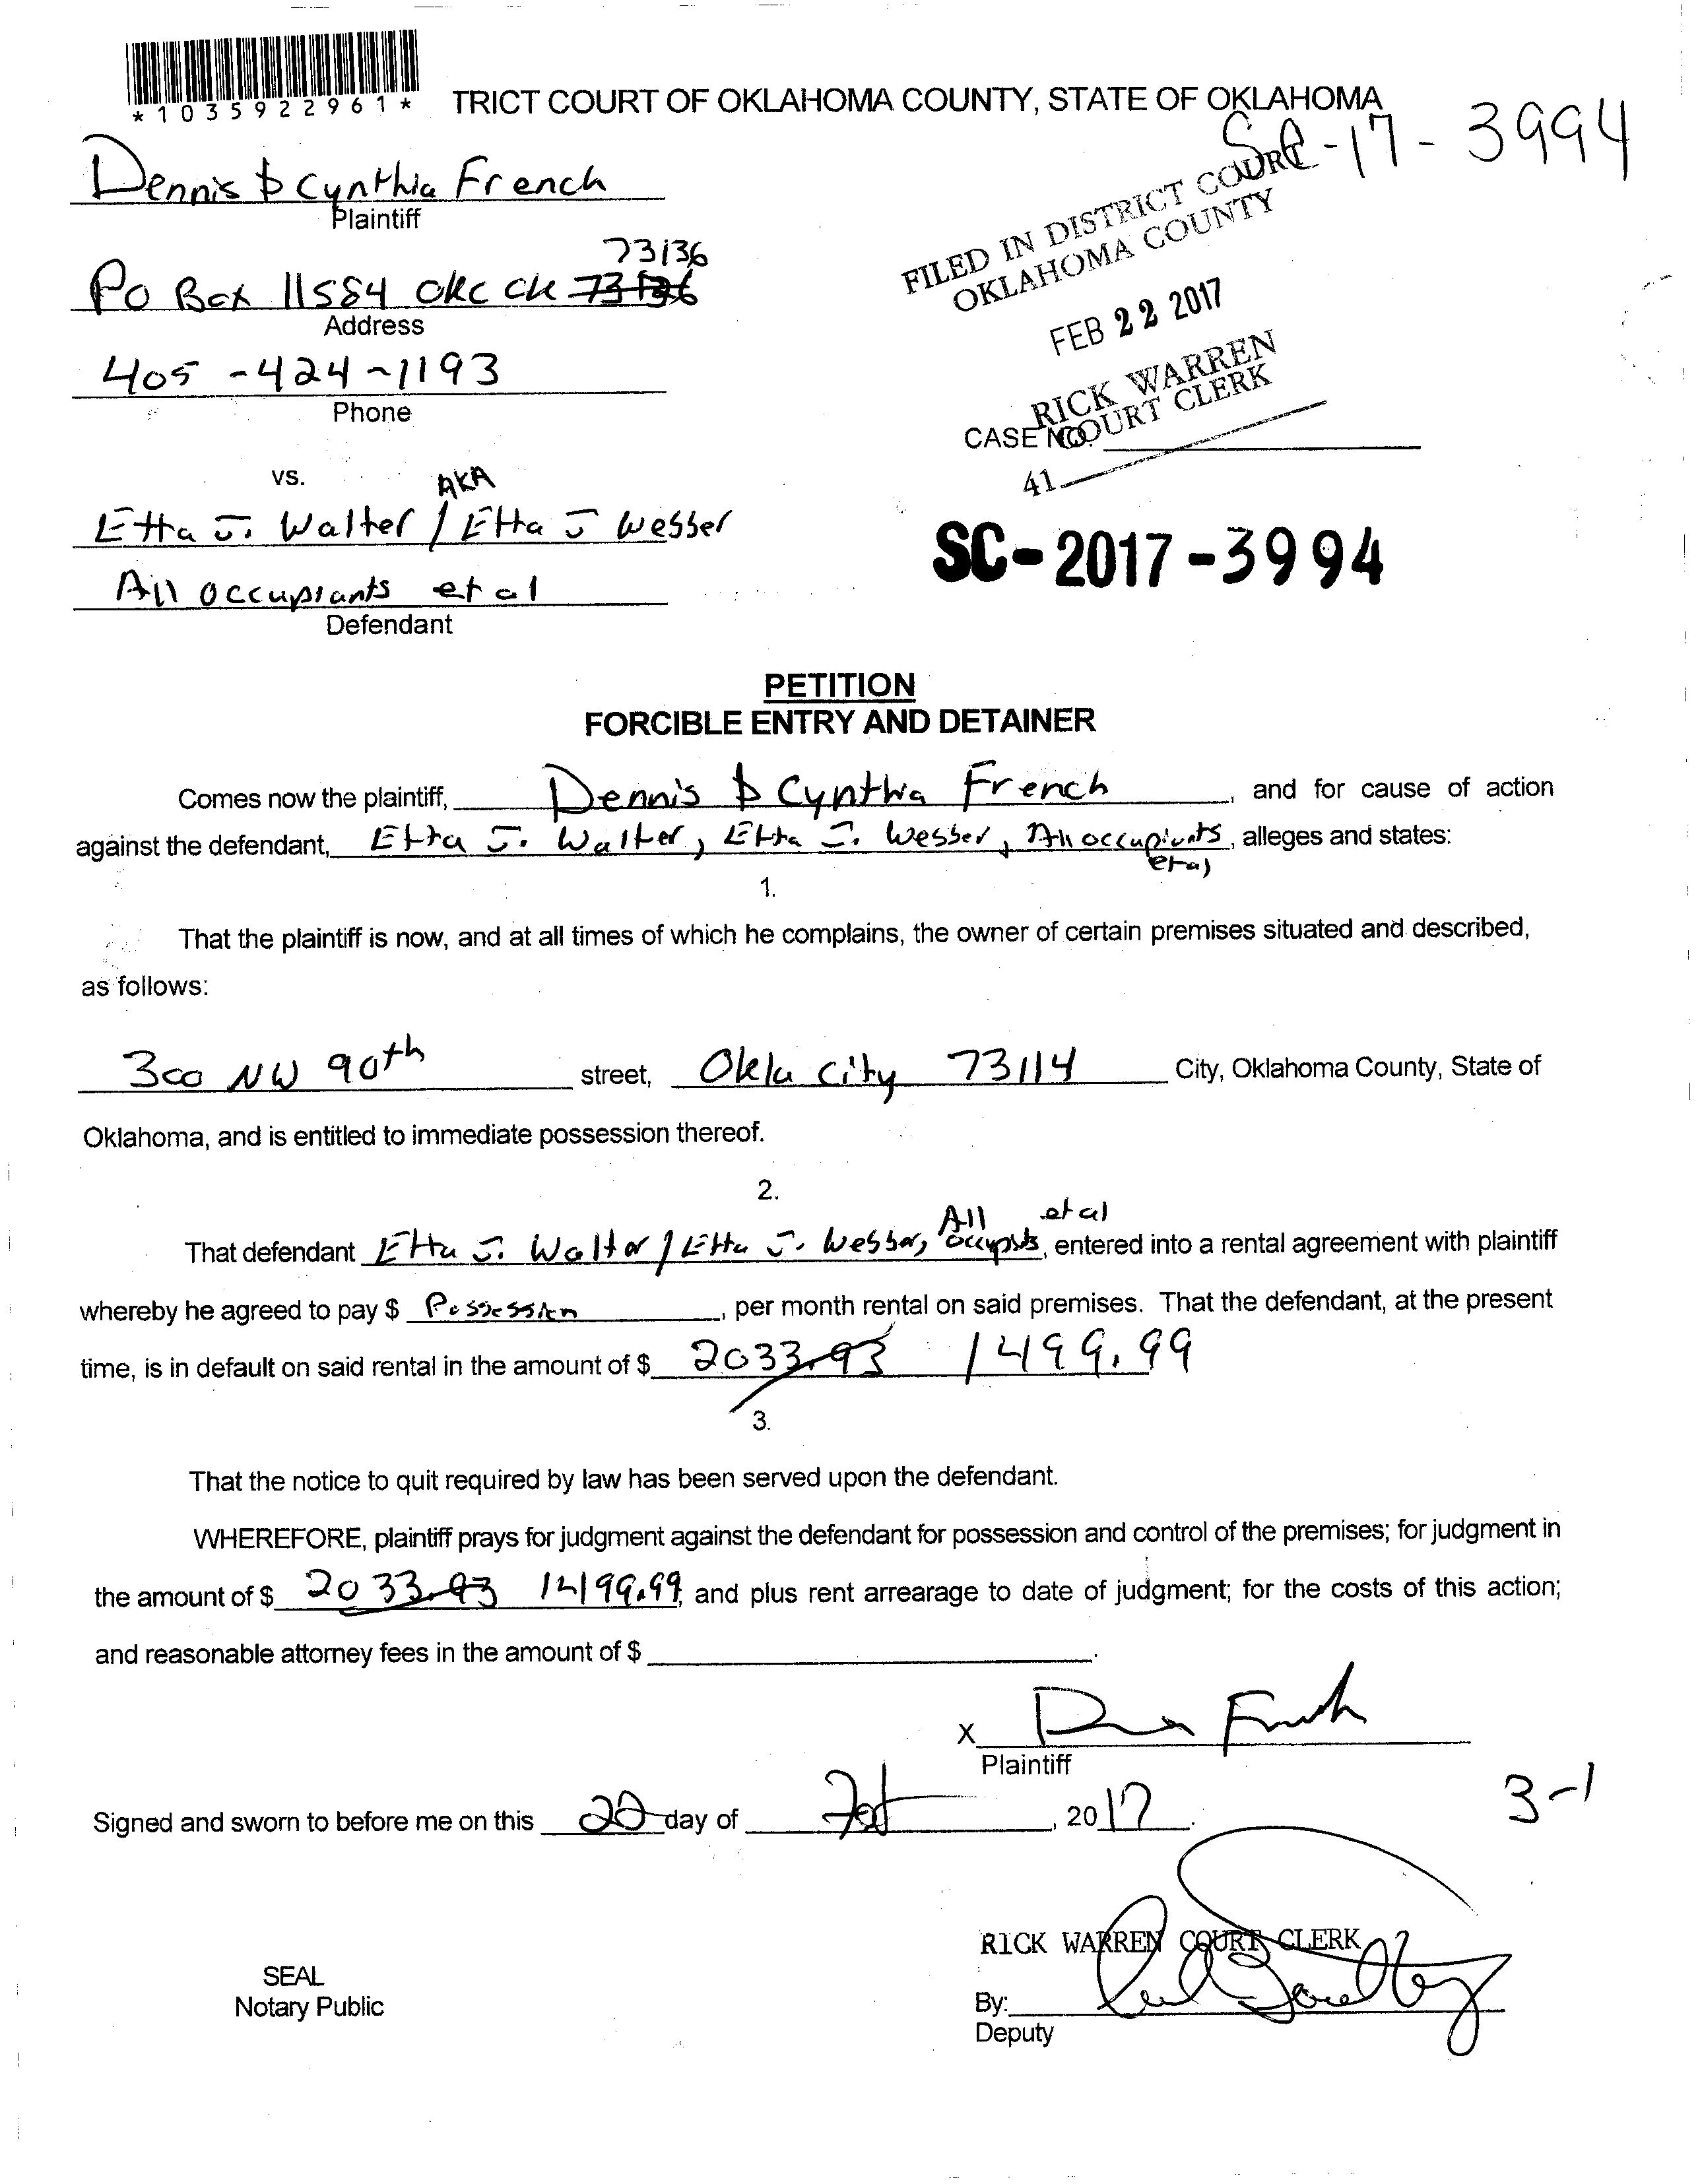 *1035922961*
TRICT COURT OF OKLAHOMA COUNTY, STATE OF OKLAHOMA
SC-17-3994
Dennis & Cynthia French
Plaintiff
73136
PO Box 11584 OKC OK 73136
Address
405-424-1193
Phone
FILED IN DISTRICT COURT
OKLAHOMA COUNTY
FEB 22 2017
RICK WARREN
COURT CLERK
CASE NO.
41
vs.
AKA
Etta J. Walter / Etta J Wesser
All occupiants et al
Defendant
SC-2017-3994
PETITION
FORCIBLE ENTRY AND DETAINER
Comes now the plaintiff, Dennis & Cynthia French, and for cause of action
against the defendant, Etta J. Walter, Etta J. Wesser, All occupiants, alleges and states:
et al
1.
That the plaintiff is now, and at all times of which he complains, the owner of certain premises situated and described,
as follows:
300 NW 90th street, Okla city 73114 City, Oklahoma County, State of
Oklahoma, and is entitled to immediate possession thereof.
2.
All et al
That defendant Etta J. Walter / Etta J. Wesser, occupists, entered into a rental agreement with plaintiff
whereby he agreed to pay $ Possession, per month rental on said premises. That the defendant, at the present
time, is in default on said rental in the amount of $ 2033.93 1499.99
3.
That the notice to quit required by law has been served upon the defendant.
WHEREFORE, plaintiff prays for judgment against the defendant for possession and control of the premises; for judgment in
the amount of $ 2033.93 1499.99, and plus rent arrearage to date of judgment; for the costs of this action;
and reasonable attorney fees in the amount of $ .
X
Plaintiff
3-1
Signed and sworn to before me on this 22 day of Feb, 2017.
RICK WARREN COURT CLERK
SEAL
Notary Public
By:
Deputy